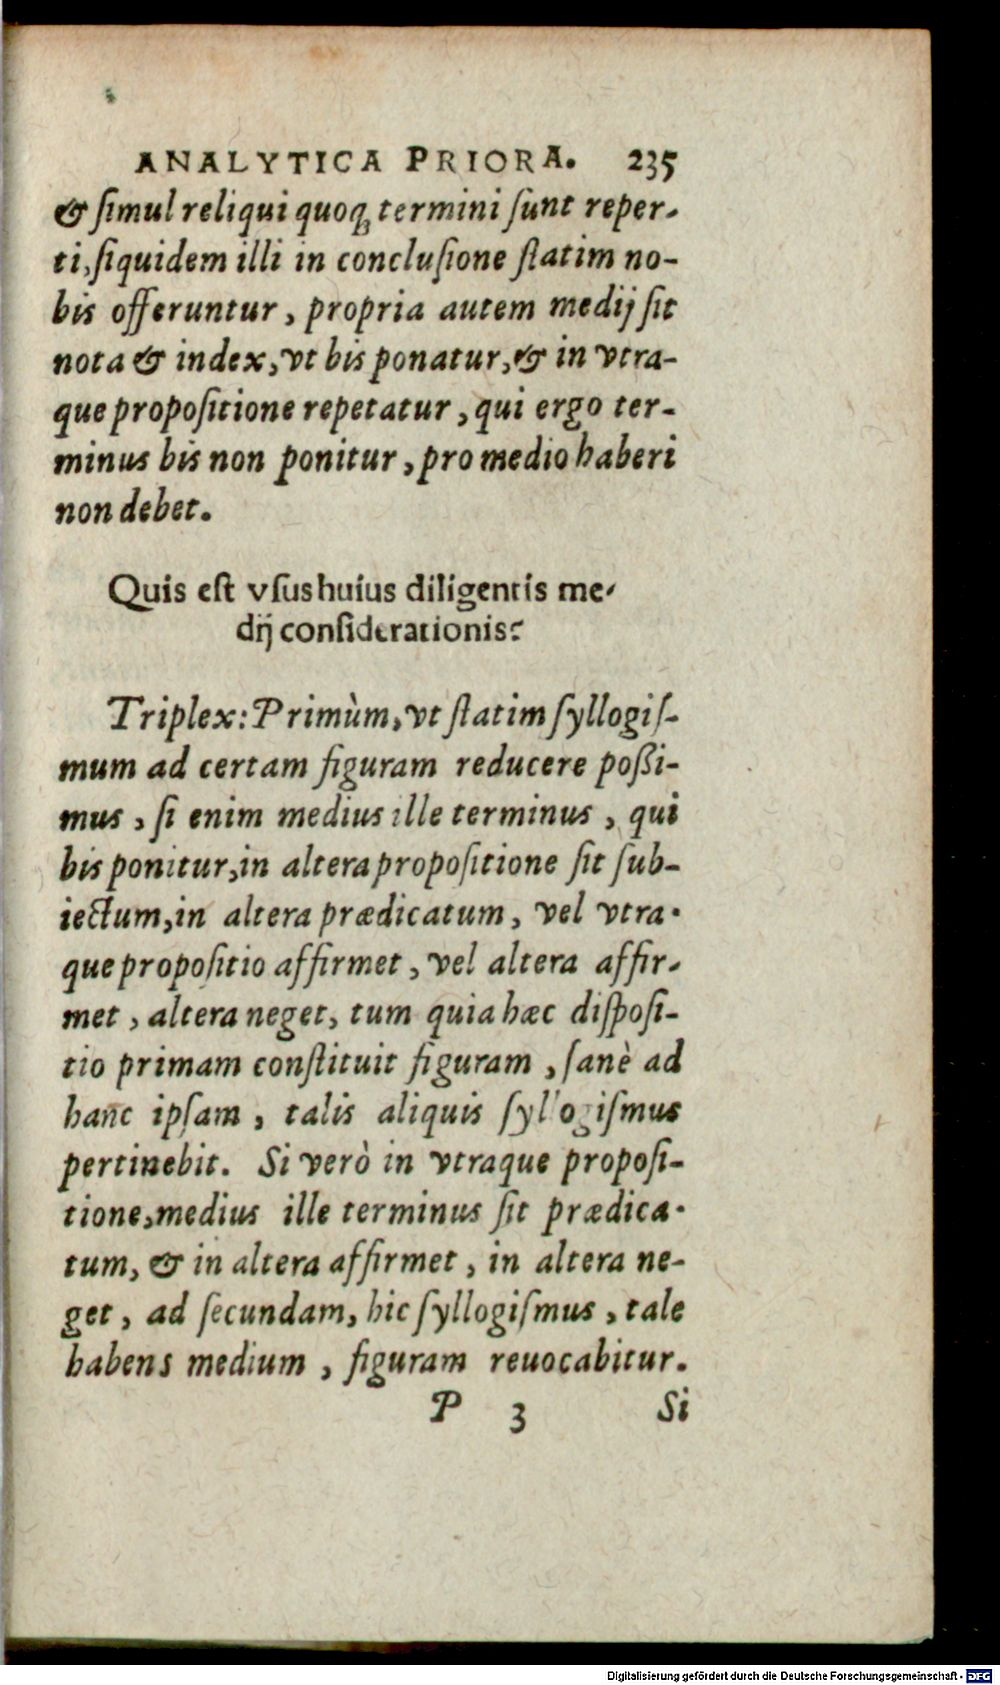 ANALYTICA PRIORA. 235
& ſimul reliqui quoq; termini ſunt reper-
ti, ſiquidem illi in concluſione ſtatim no-
bis offeruntur, propria autem medij ſit
nota & index, vt bis ponatur, & in vtra-
que propoſitione repetatur, qui ergo ter-
minus bis non ponitur, pro medio haberi
non debet.
Quis eſt vſus huius diligentis me-
dij conſiderationis?
Triplex: Primùm, vt ſtatim ſyllogiſ-
mum ad certam figuram reducere poßi-
mus, ſi enim medius ille terminus, qui
bis ponitur, in altera propoſitione ſit ſub-
iectum, in altera prædicatum, vel vtra-
que propoſitio affirmet, vel altera affir-
met, altera neget, tum quia hæc diſpoſi-
tio primam conſtituit figuram, ſanè ad
hanc ipſam, talis aliquis ſyllogiſmus
pertinebit. Si verò in vtraque propoſi-
tione, medius ille terminus ſit prædica-
tum, & in altera affirmet, in altera ne-
get, ad ſecundam, hic ſyllogiſmus, tale
habens medium, figuram reuocabitur.
P 3 Si
Digitalisierung gefördert durch die Deutsche Forschungsgemeinschaft - DFG